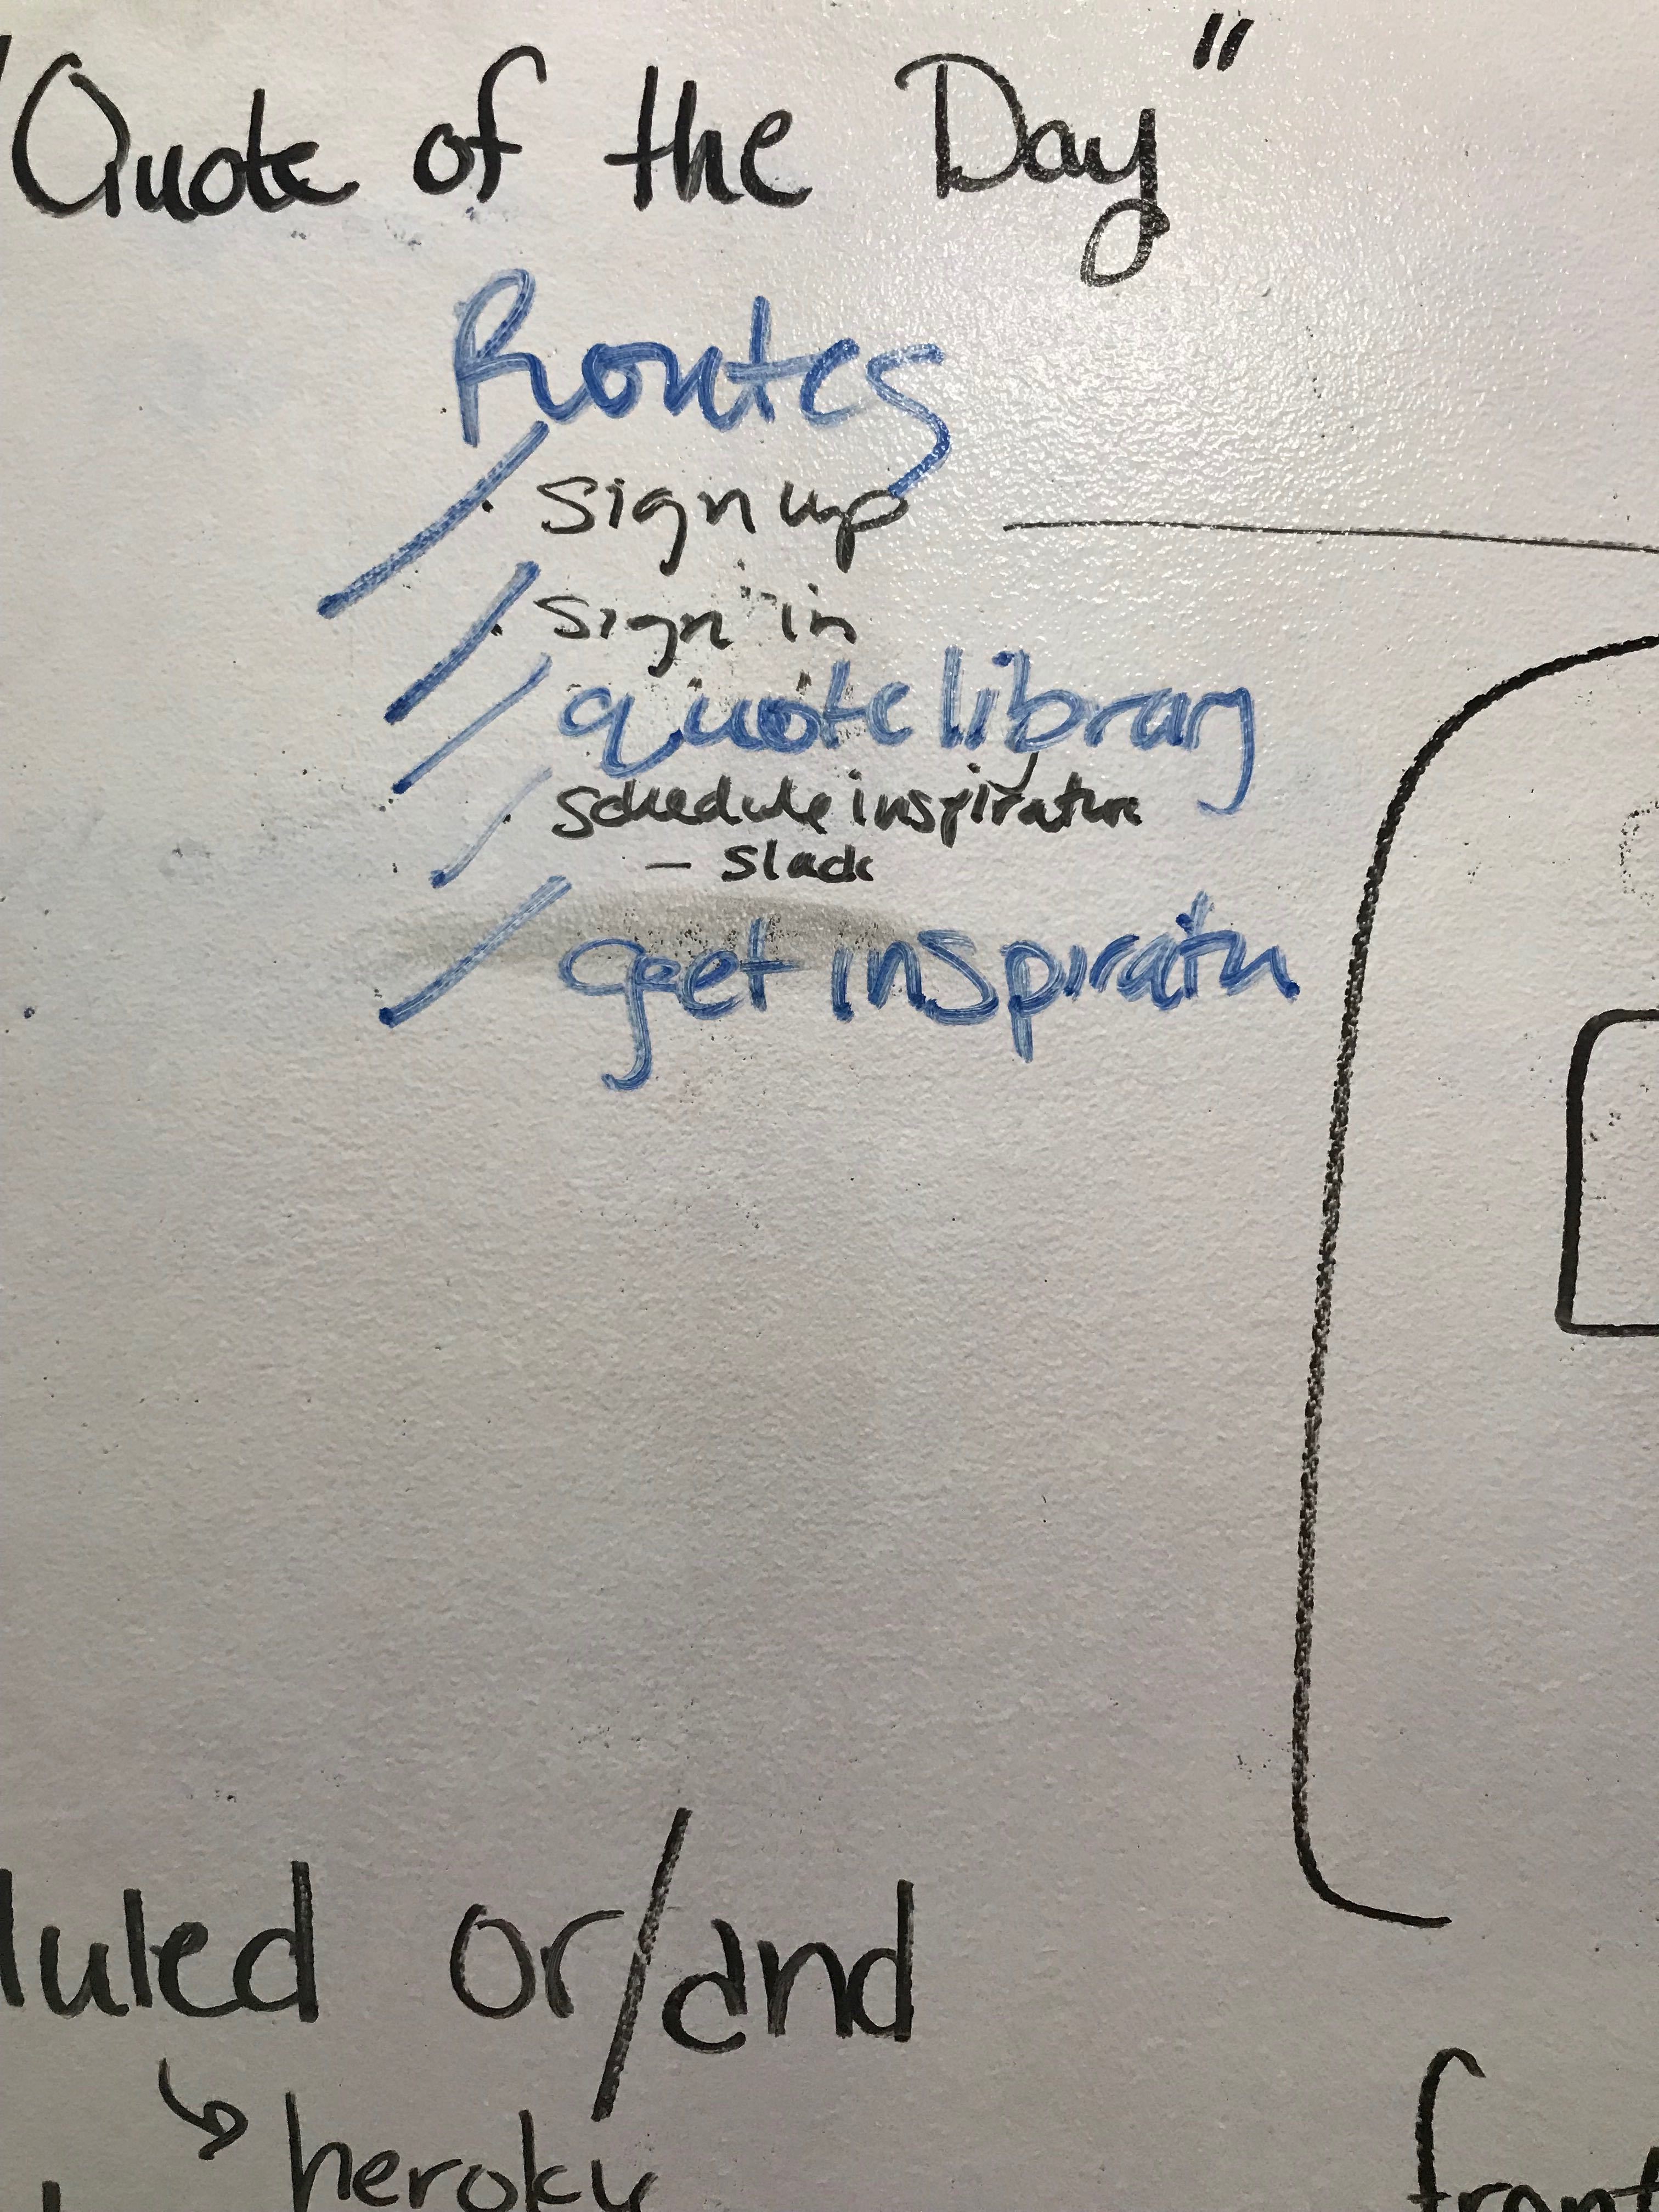 "Quote of the Day"
Routes
/ · Sign up
/ · Sign in
/ quote library
/ · Schedule inspiration
— Slack
/ get inspiratn
duled or/and
↳ heroku
front